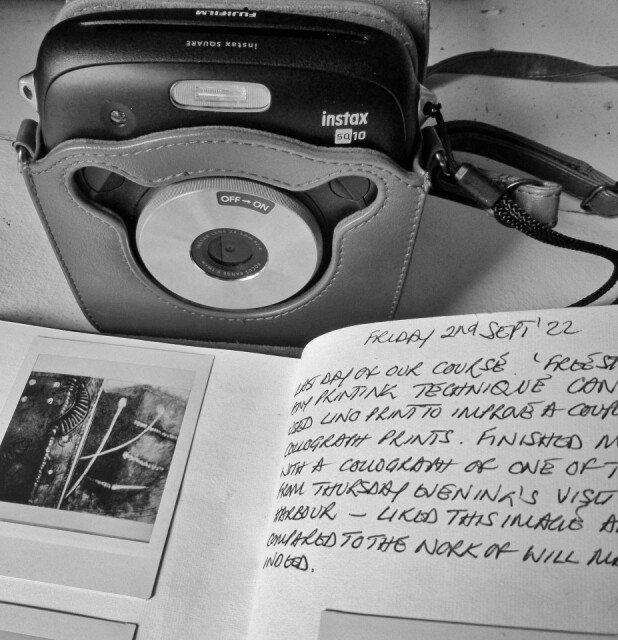 FUJIFILM
instax SQUARE
instax
SQ10
OFF→ON
FRIDAY 2nd SEPT '22
LAST DAY OF OUR COURSE. 'FREEST
ANY PRINTING TECHNIQUE CON
USED LINO PRINT TO IMPROVE A COUP
COLLOGRAPH PRINTS. FINISHED M
WITH A COLLOGRAPH OF ONE OF T
FROM THURSDAY EVENING'S VISIT
HARBOUR — LIKED THIS IMAGE A
COMPARED TO THE WORK OF WILL MA
INDEED.